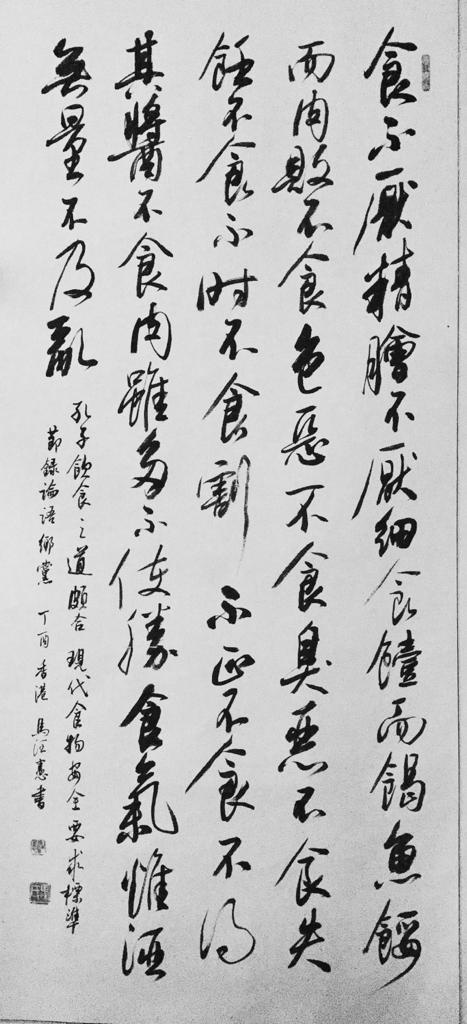 食不厭精膾不厭細食饐而餲魚餒
而肉敗不食色惡不食臭惡不食失
飪不食不时不食割不正不食不得
其醬不食肉雖多不使勝食氣惟酒
無量不及亂
孔子飲食之道頗合現代食物安全要求標準
節錄論語鄉黨 丁酉香港 馬 書